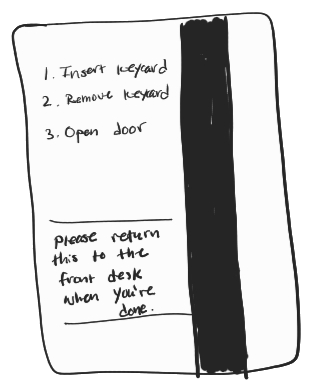 1. Insert keycard
2. Remove keycard
3. Open door
Please return
this to the
front desk
when you're
done.